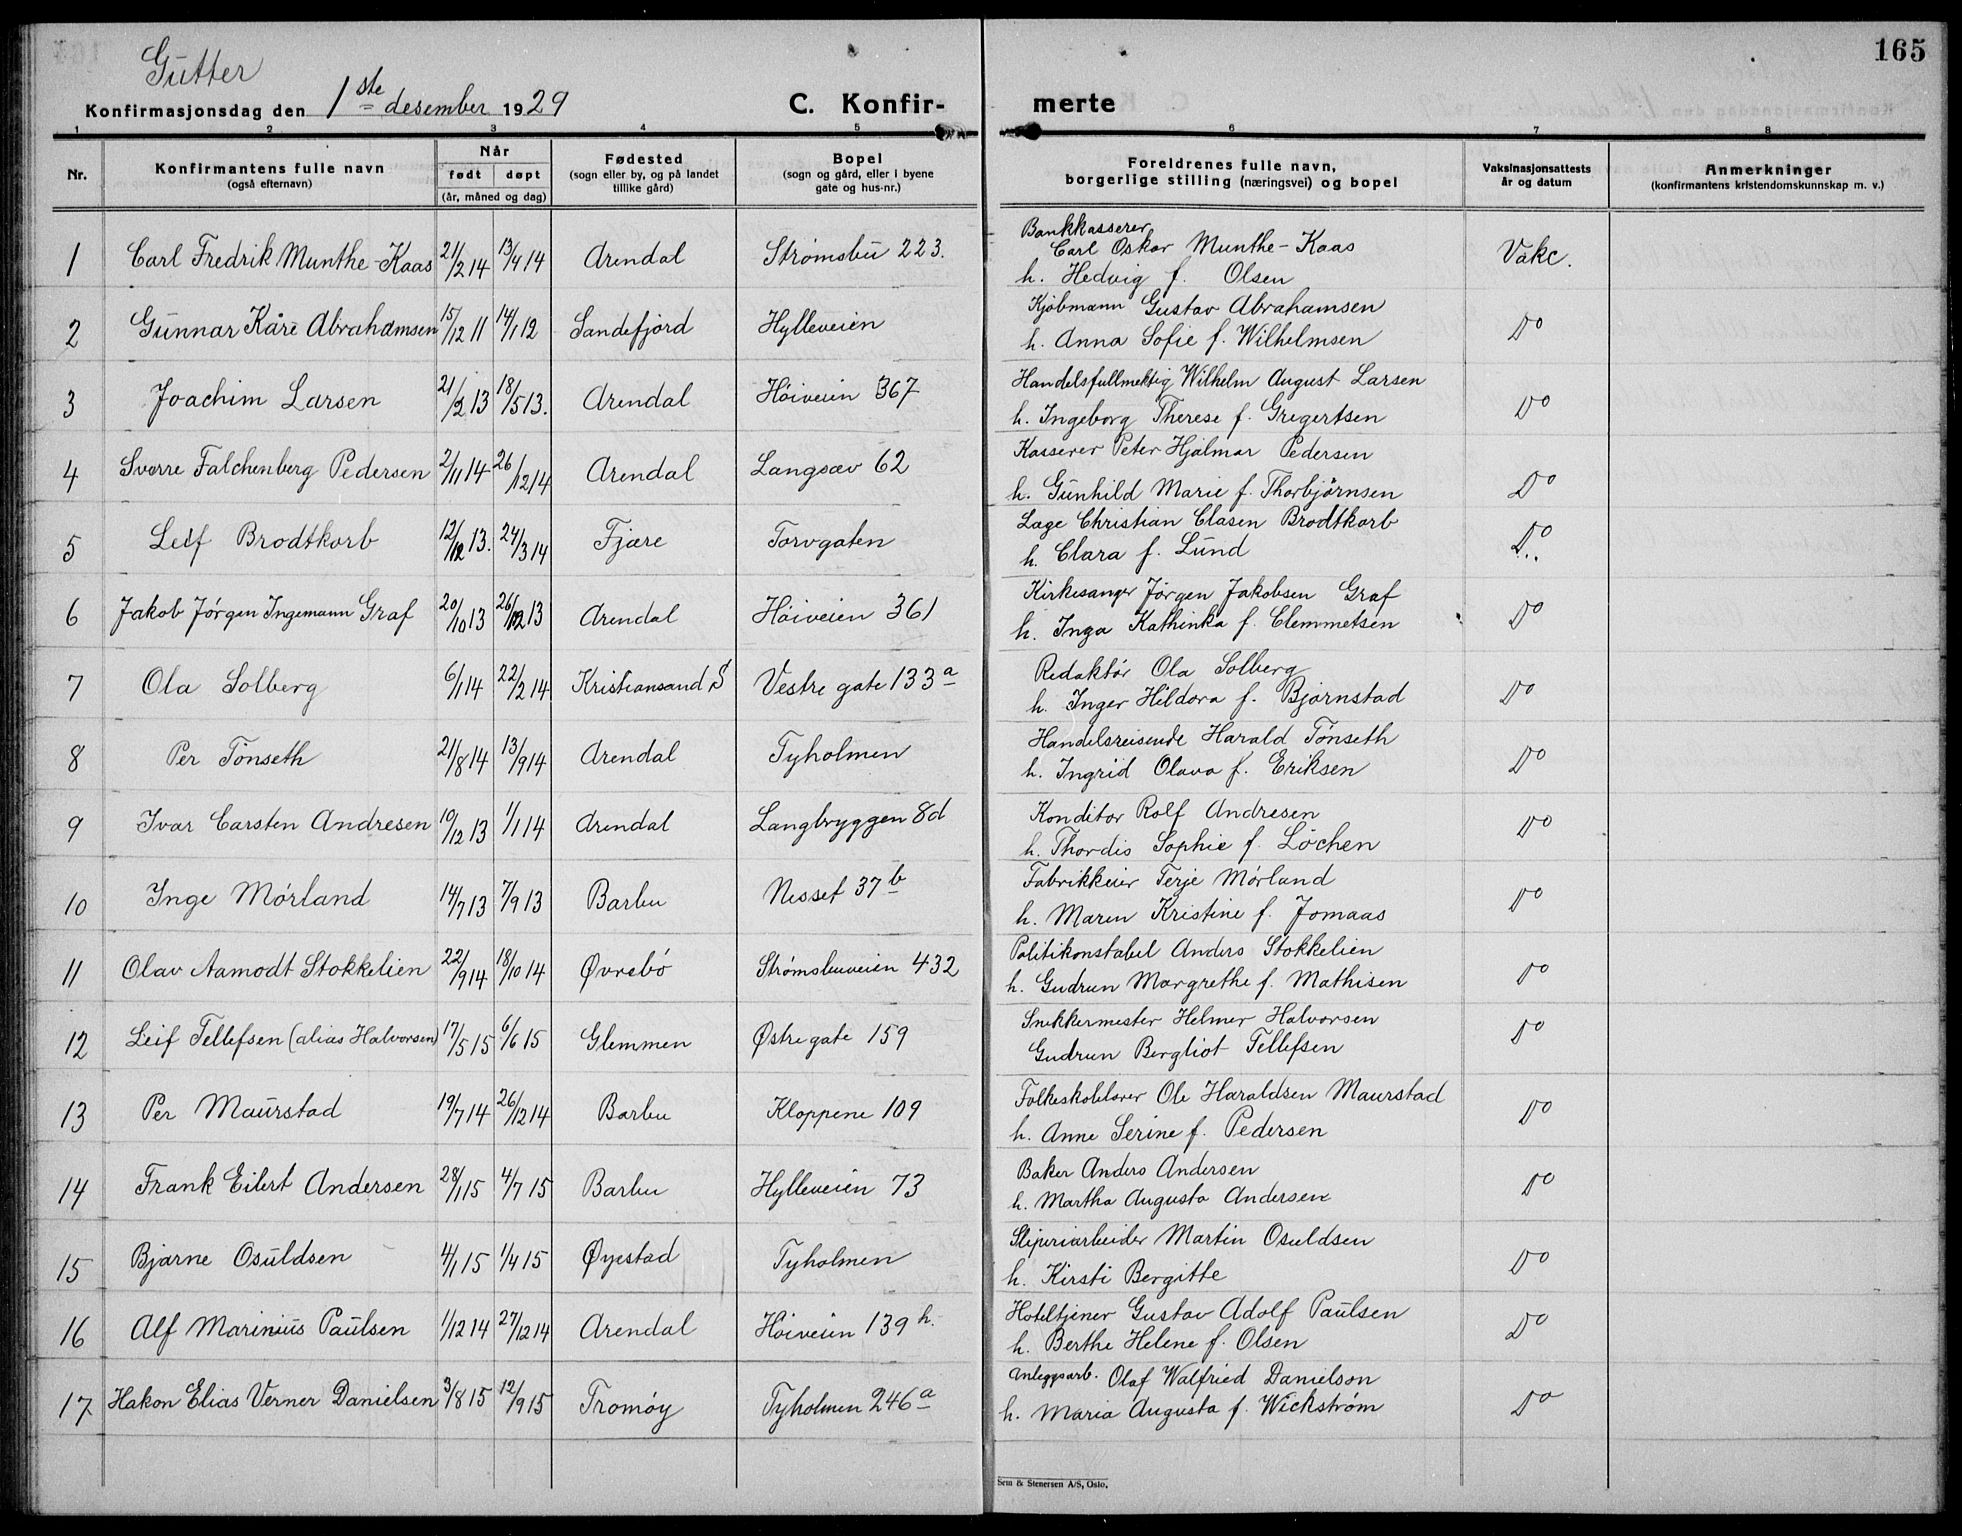 165
Gutter
Konfirmasjonsdag den 1ste desember 1929 C. Konfir- merte
1 2 3 4 5 6 7 8
Nr. Konfirmantens fulle navn (også efternavn) Når født døpt (år, måned og dag) Fødested (sogn eller by, og på landet tillike gård) Bopel (sogn og gård, eller i byene gate og hus-nr.) Foreldrenes fulle navn, borgerlige stilling (næringsvei) og bopel Vaksinasjonsattests år og datum Anmerkninger (konfirmantens kristendomskunnskap m. v.)
1 Carl Fredrik Munthe-Kaas 21/2 14 13/4 14 Arendal Strømsbu 223. Bankkasserer Carl Oskar Munthe-Kaas
h. Hedvig f. Olsen Vakc.
2 Gunnar Kåre Abrahamsen 15/12 11 14/1 12 Sandefjord Hylleveien Kjøbmann Gustav Abrahamsen
h. Anna Sofie f. Wilhelmsen Do
3 Joachim Larsen 21/2 13 18/5 13. Arendal Høiveien 367 Handelsfullmektig Wilhelm August Larsen
h. Ingeborg Therese f. Gregertsen Do
4 Sverre Falchenberg Pedersen 2/11 14 26/12 14 Arendal Langsæv 62 Kasserer Peter Hjalmar Pedersen
h. Gunhild Marie f. Thorbjørnsen Do
5 Leif Brodtkorb 12/12 13. 24/3 14 Fjære Torvgaten Læge Christian Clasen Brodtkorb
h. Clara f. Lund Do
6 Jakob Jørgen Ingemann Graf 20/10 13 26/12 13 Arendal Høiveien 361 Kirkesanger Jørgen Jakobsen Graf
h. Inga Kathinka f. Clemmetsen Do
7 Ola Solberg 6/1 14 22/2 14 Kristiansand S Vestre gate 133a Redaktør Ola Solberg
h. Inger Hildora f. Bjørnstad Do
8 Per Tønseth 21/8 14 13/9 14 Arendal Tyholmen Handelsreisende Harald Tønseth
h. Ingrid Olava f. Eriksen Do
9 Ivar Carsten Andresen 19/12 13 1/1 14 Arendal Langbryggen 8d Konditor Rolf Andresen
h. Thordis Sophie f. Löchen Do
10 Inge Mørland 14/7 13 7/9 13 Barbu Nesset 37b Fabrikkeier Terje Mørland
h. Maren Kristine f. Jomaas Do
11 Olav Aamodt Stokkelien 22/9 14 18/10 14 Øvrebø Strømsbuveien 432 Politikonstabel Anders Stokkelien
h. Gudrun Margrethe f. Mathisen Do
12 Leif Tellefsen (alias Halvorsen) 17/5 15 6/6 15 Glemmen Østre gate 159 Snekkermester Helmer Halvorsen
Gudrun Bergliot Tellefsen Do
13 Per Maurstad 19/7 14 26/12 14 Barbu Kloppene 109 Folkeskolelærer Ole Haraldsen Maurstad
h. Anne Serine f. Pedersen Do
14 Frank Eilert Andersen 28/1 15 4/7 15 Barbu Hylleveien 73 Baker Anders Andersen
h. Martha Augusta Andersen Do
15 Bjarne Osuldsen 4/1 15 1/4 15 Øyestad Tyholmen Sliperiarbeider Martin Osuldsen
h. Kirsti Bergitte Do
16 Alf Marinius Paulsen 1/12 14 27/12 14 Arendal Høiveien 139 h. Hoteltjener Gustav Adolf Paulsen
h. Berthe Helene f. Olsen Do
17 Hakon Elias Verner Danielsen 3/8 15 12/9 15 Tromøy Tyholmen 246a Anleggsarb. Olaf Walfried Danielson
h. Maria Augusta f. Wickstrøm Do
Sem & Stenersen A/S, Oslo.